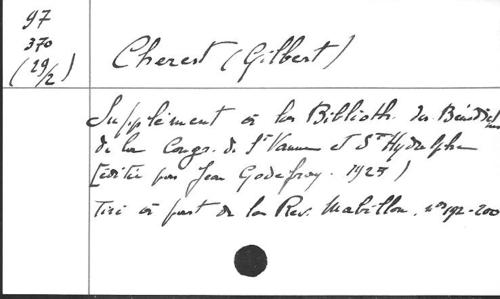 97
370
(29/2)
Cherest (Gilbert)
Supplément à la Biblioth. des Bénédictins
de la Congr. de St Vanne et St Hydulphe
[édité par Jean Godefroy. 1925)
Tiré à part de la Rev. Mabillon. nos 192-200